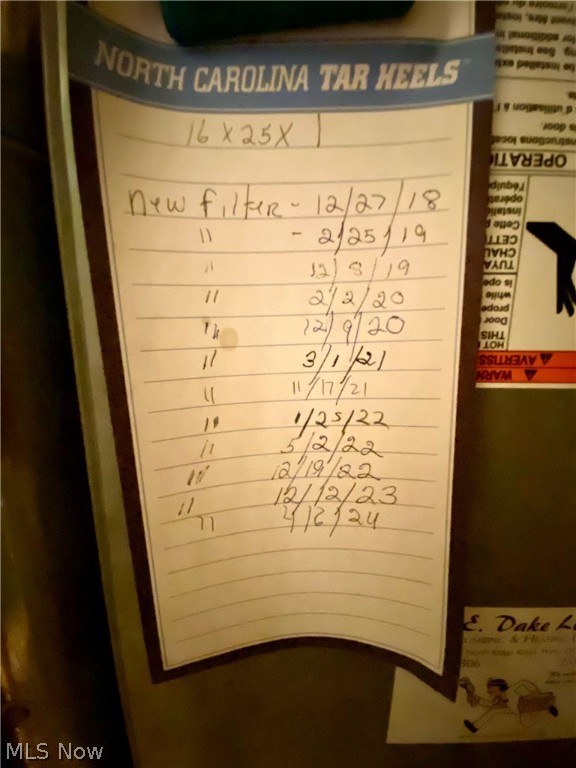 NORTH CAROLINA TAR HEELS
16 X 25 X 1
new filter - 12/27/18
" - 2/25/19
" 12/8/19
" 2/2/20
" 12/9/20
" 3/1/21
" 11/17/21
" 1/25/22
" 5/2/22
" 12/19/22
" 12/12/23
" 4/6/24
OPERATI
THIS
HOT
AVERTISS
WARN
E. Dake L
306
MLS Now